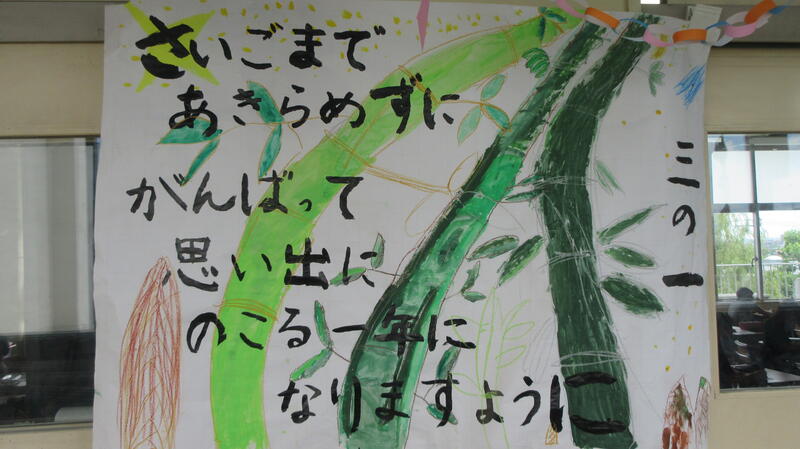 さいごまで
あきらめずに
がんばって
思い出に
のこる一年に
なりますように
三の一